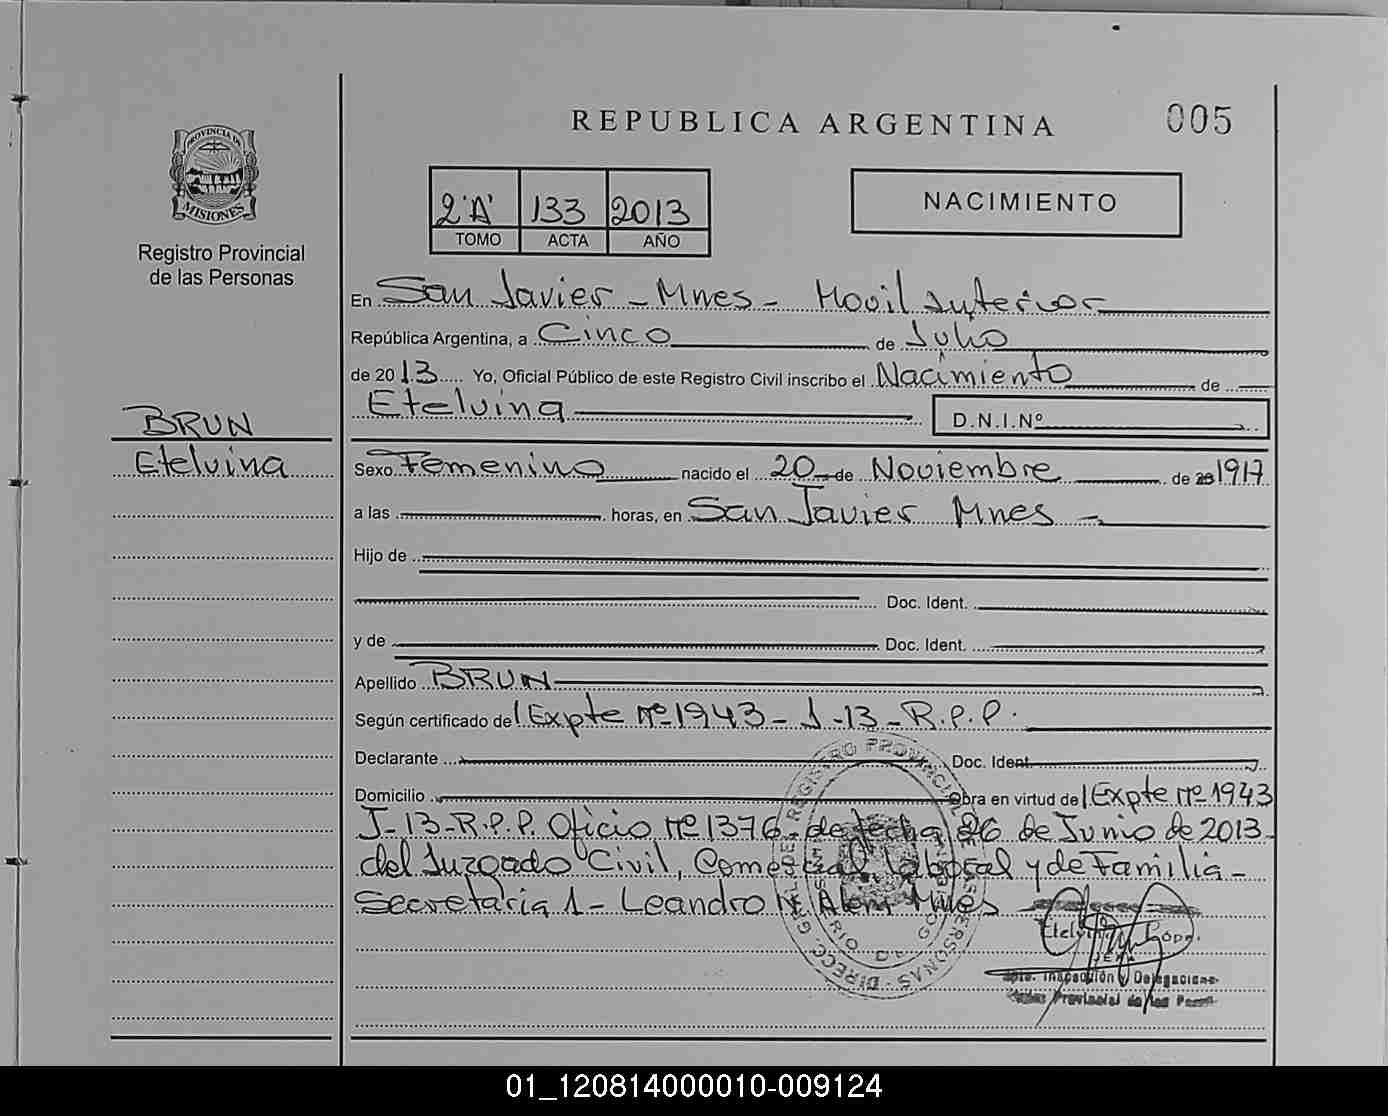 REPUBLICA ARGENTINA
005
PROVINCIA DE
MISIONES
Registro Provincial
de las Personas
2"A" 133 2013
TOMO ACTA AÑO
NACIMIENTO
En San Javier - Mnes - Movil Interior
República Argentina, a Cinco de Julio
de 2013 Yo, Oficial Público de este Registro Civil inscribo el Nacimiento de
Etelvina D.N.I.Nº
BRUN
Etelvina
Sexo Femenino nacido el 20 de Noviembre de 20 1917
a las horas, en San Javier Mnes -
Hijo de
Doc. Ident.
y de Doc. Ident.
Apellido BRUN
Según certificado de Expte Nº 1943 - J - 13 - R.P.P.
Declarante Doc. Ident.
Domicilio Obra en virtud de Expte Nº 1943
J-13-R.P.P. Oficio Nº 1376 de fecha 26 de Junio de 2013
del Juzgado Civil, Comercial, Laboral y de Familia -
Secretaria 1 - Leandro N Alem Mnes
DIRECC. GRAL. DEL REGISTRO PROVINCIAL DE LAS PERSONAS
Etelvina López
JEFA
Dpto. Inspección y Delegaciones
Provincial de las Pers.
01_120814000010-009124